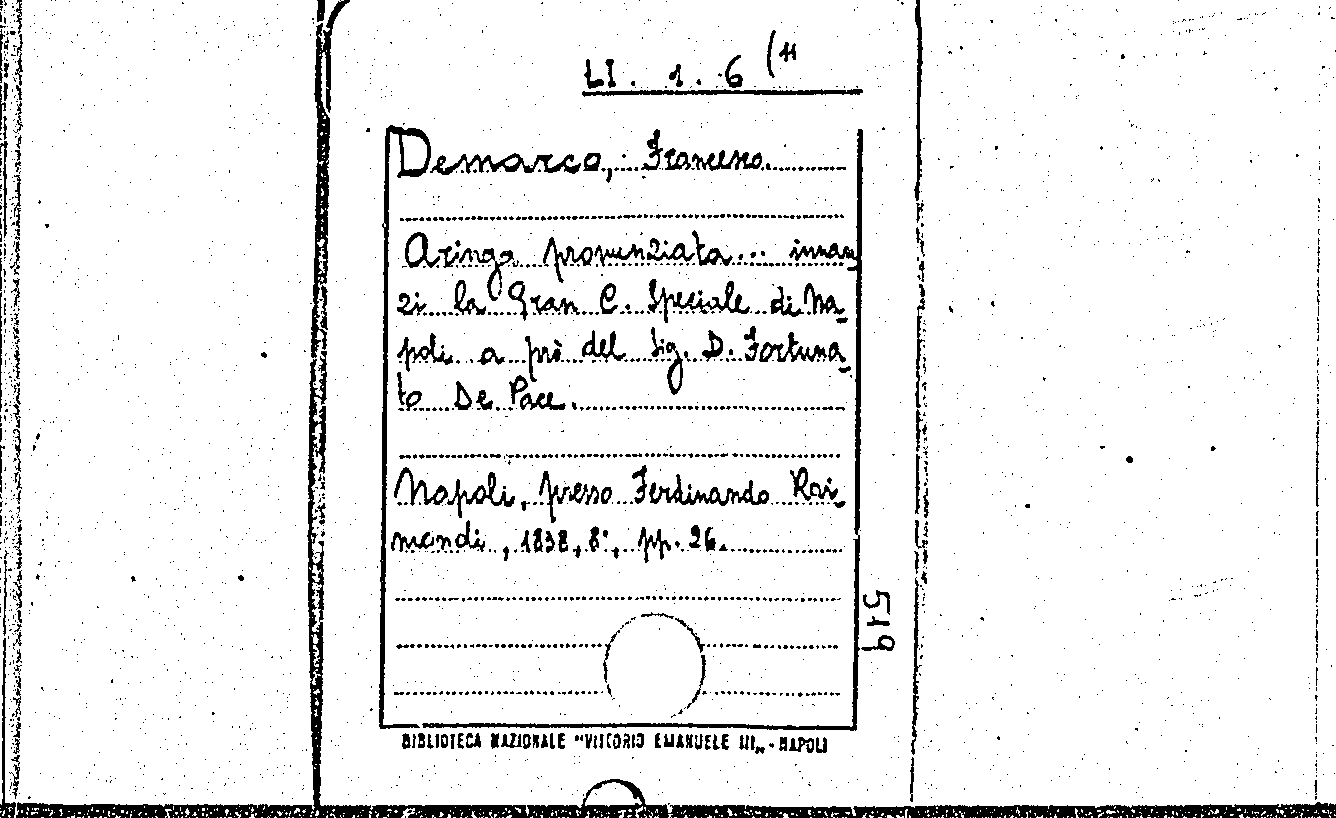 LI. 1. 6 (11
Demarco, Francesco.
Aringa pronunziata... innan-
zi la Gran C. Speciale di Na-
poli a prò del Sig. D. Fortuna-
to De Pace.
Napoli, presso Ferdinando Rai-
mondi, 1838, 8°, pp. 26.
519
BIBLIOTECA NAZIONALE "VITTORIO EMANUELE III„ - NAPOLI